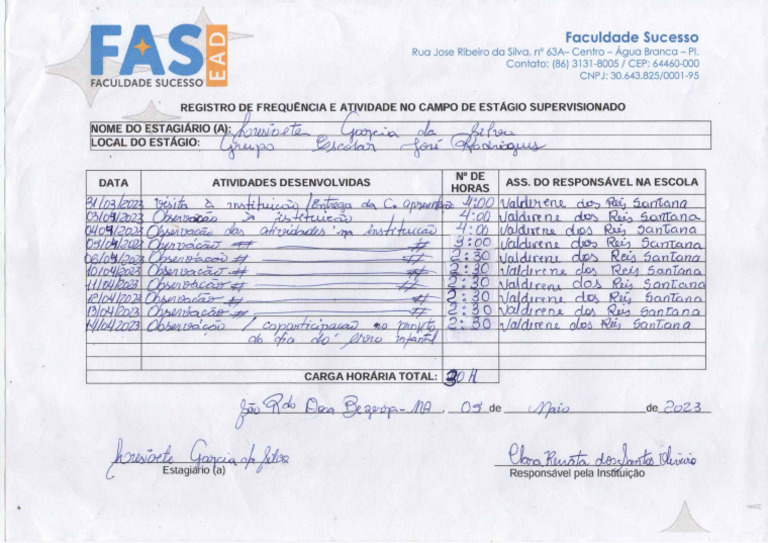 FAS EAD
FACULDADE SUCESSO
Faculdade Sucesso
Rua Jose Ribeiro da Silva, nº 63A– Centro – Água Branca – PI.
Contato: (86) 3131-8005 / CEP: 64460-000
CNPJ: 30.643.825/0001-95
REGISTRO DE FREQUÊNCIA E ATIVIDADE NO CAMPO DE ESTÁGIO SUPERVISIONADO
NOME DO ESTAGIÁRIO (A): Garcia da Silva
LOCAL DO ESTÁGIO: Grupo Escolar José Rodrigues
DATA ATIVIDADES DESENVOLVIDAS Nº DE HORAS ASS. DO RESPONSÁVEL NA ESCOLA
31/03/2023 Visita à instituição / Entrega da C. 4:00 Valdirene dos Reis Santana
03/04/2023 Observação instituição 4:00 Valdirene dos Reis Santana
04/04/2023 Observação das atividades na instituição 4:00 Valdirene dos Reis Santana
05/04/2023 Observação # # 3:00 Valdirene dos Reis Santana
06/04/2023 Observação # # 2:30 Valdirene dos Reis Santana
10/04/2023 Observação # # 2:30 Valdirene dos Reis Santana
11/04/2023 Observação # # 2:30 Valdirene dos Reis Santana
12/04/2023 Observação # # 2:30 Valdirene dos Reis Santana
13/04/2023 Observação # # 2:30 Valdirene dos Reis Santana
14/04/2023 Observação / coparticipação no projeto 2:30 Valdirene dos Reis Santana
do dia do livro infantil
CARGA HORÁRIA TOTAL: 30 H
São Rdo Doca Bezerra-MA, 05 de Maio de 2023
Garcia da Silva
Estagiário (a)
Clara Renata dos Santos Oliveira
Responsável pela Instituição